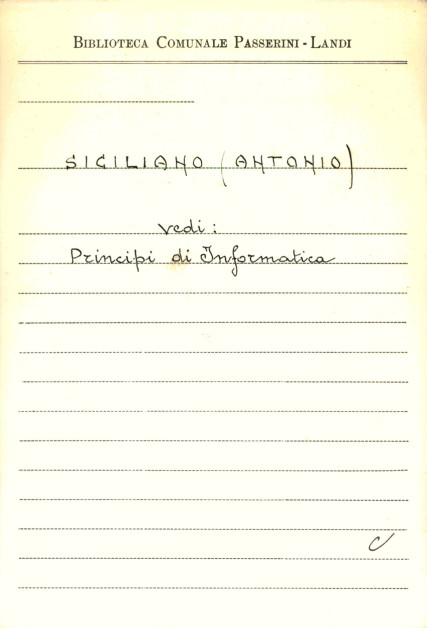 BIBLIOTECA COMUNALE PASSERINI - LANDI
SICILIANO (ANTONIO)
vedi:
Principi di Informatica